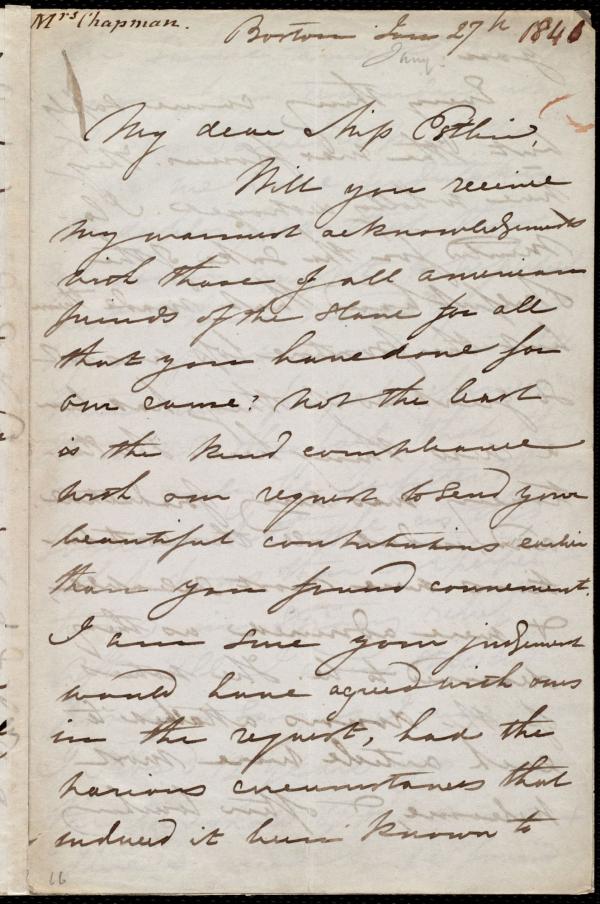 Mrs Chapman.
Boston Jan 27th 1846
Jany.
My dear Miss Estlin,
Will you receive
my warmest acknowledgments
with those of all american
friends of the slave for all
that you have done for
our cause? Not the least
is the kind compliance
with our request to send your
beautiful contributions earlier
than you found convenient.
I am sure your judgment
would have agreed with ours
in the request, had the
various circumstances that
induced it been known to